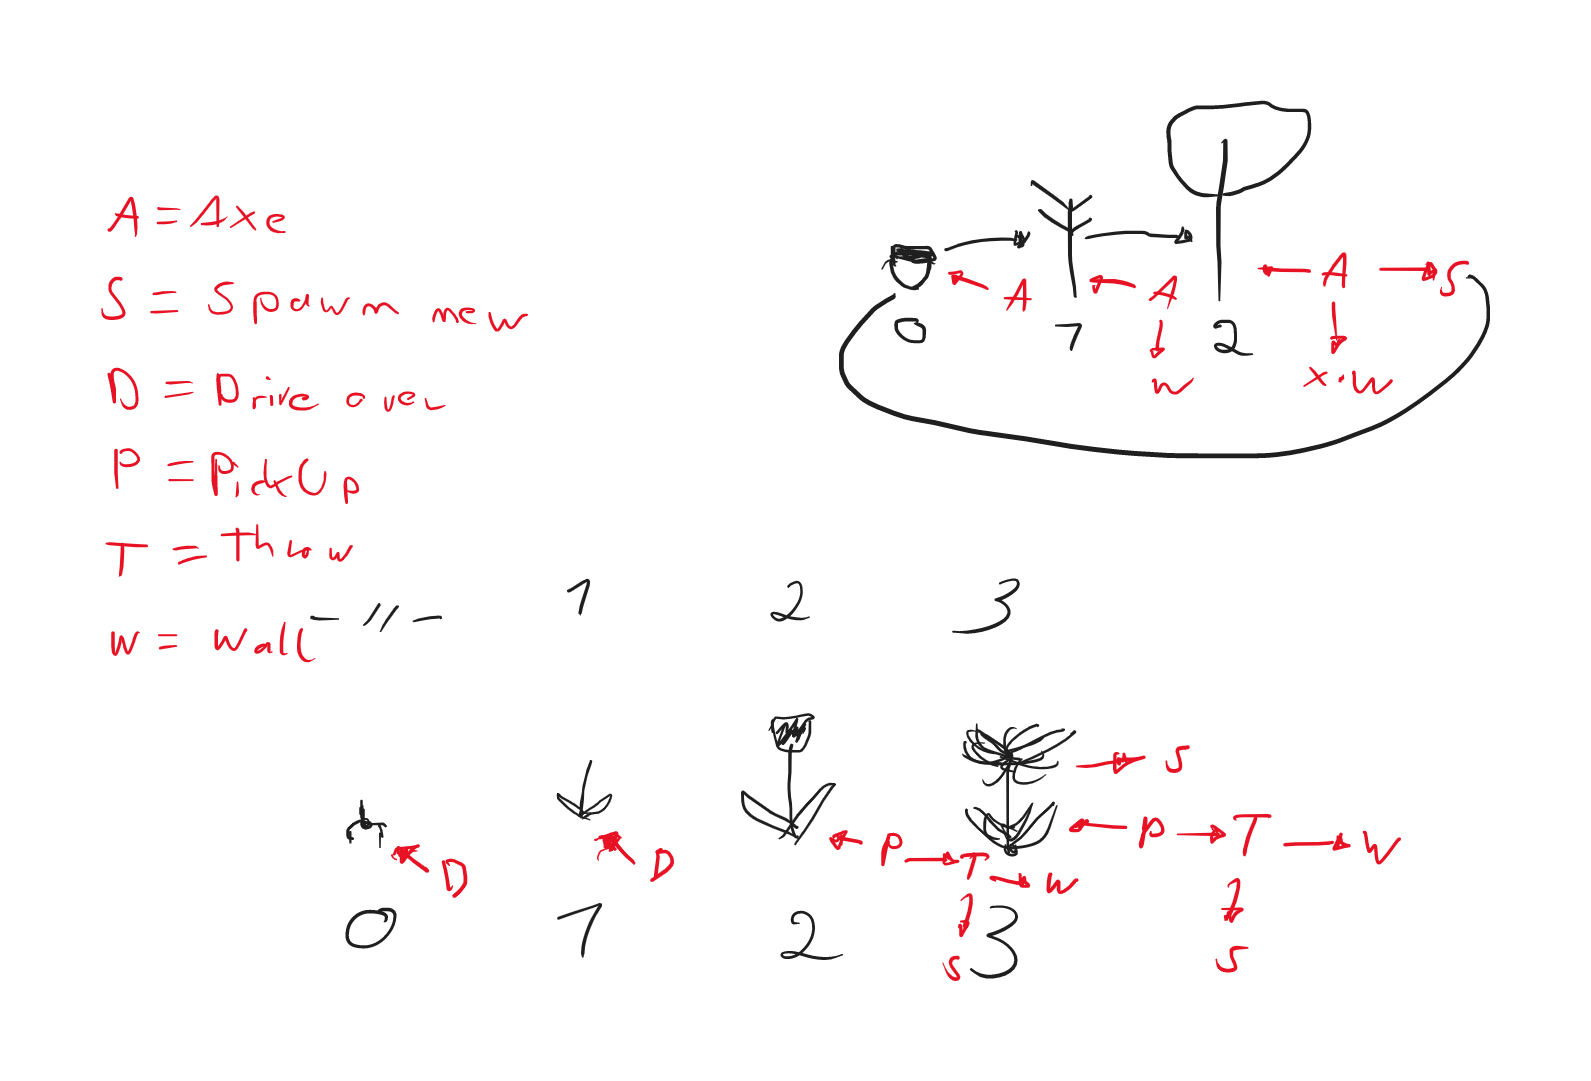 A = Axe
S = Spawn new
D = Drive over
P = PickUp
T = Throw
W = Wall
A
A
A
S
0
1
2
W
x·W
1
2
3
S
D
D
P
T
W
S
P
T
W
S
0
1
2
3